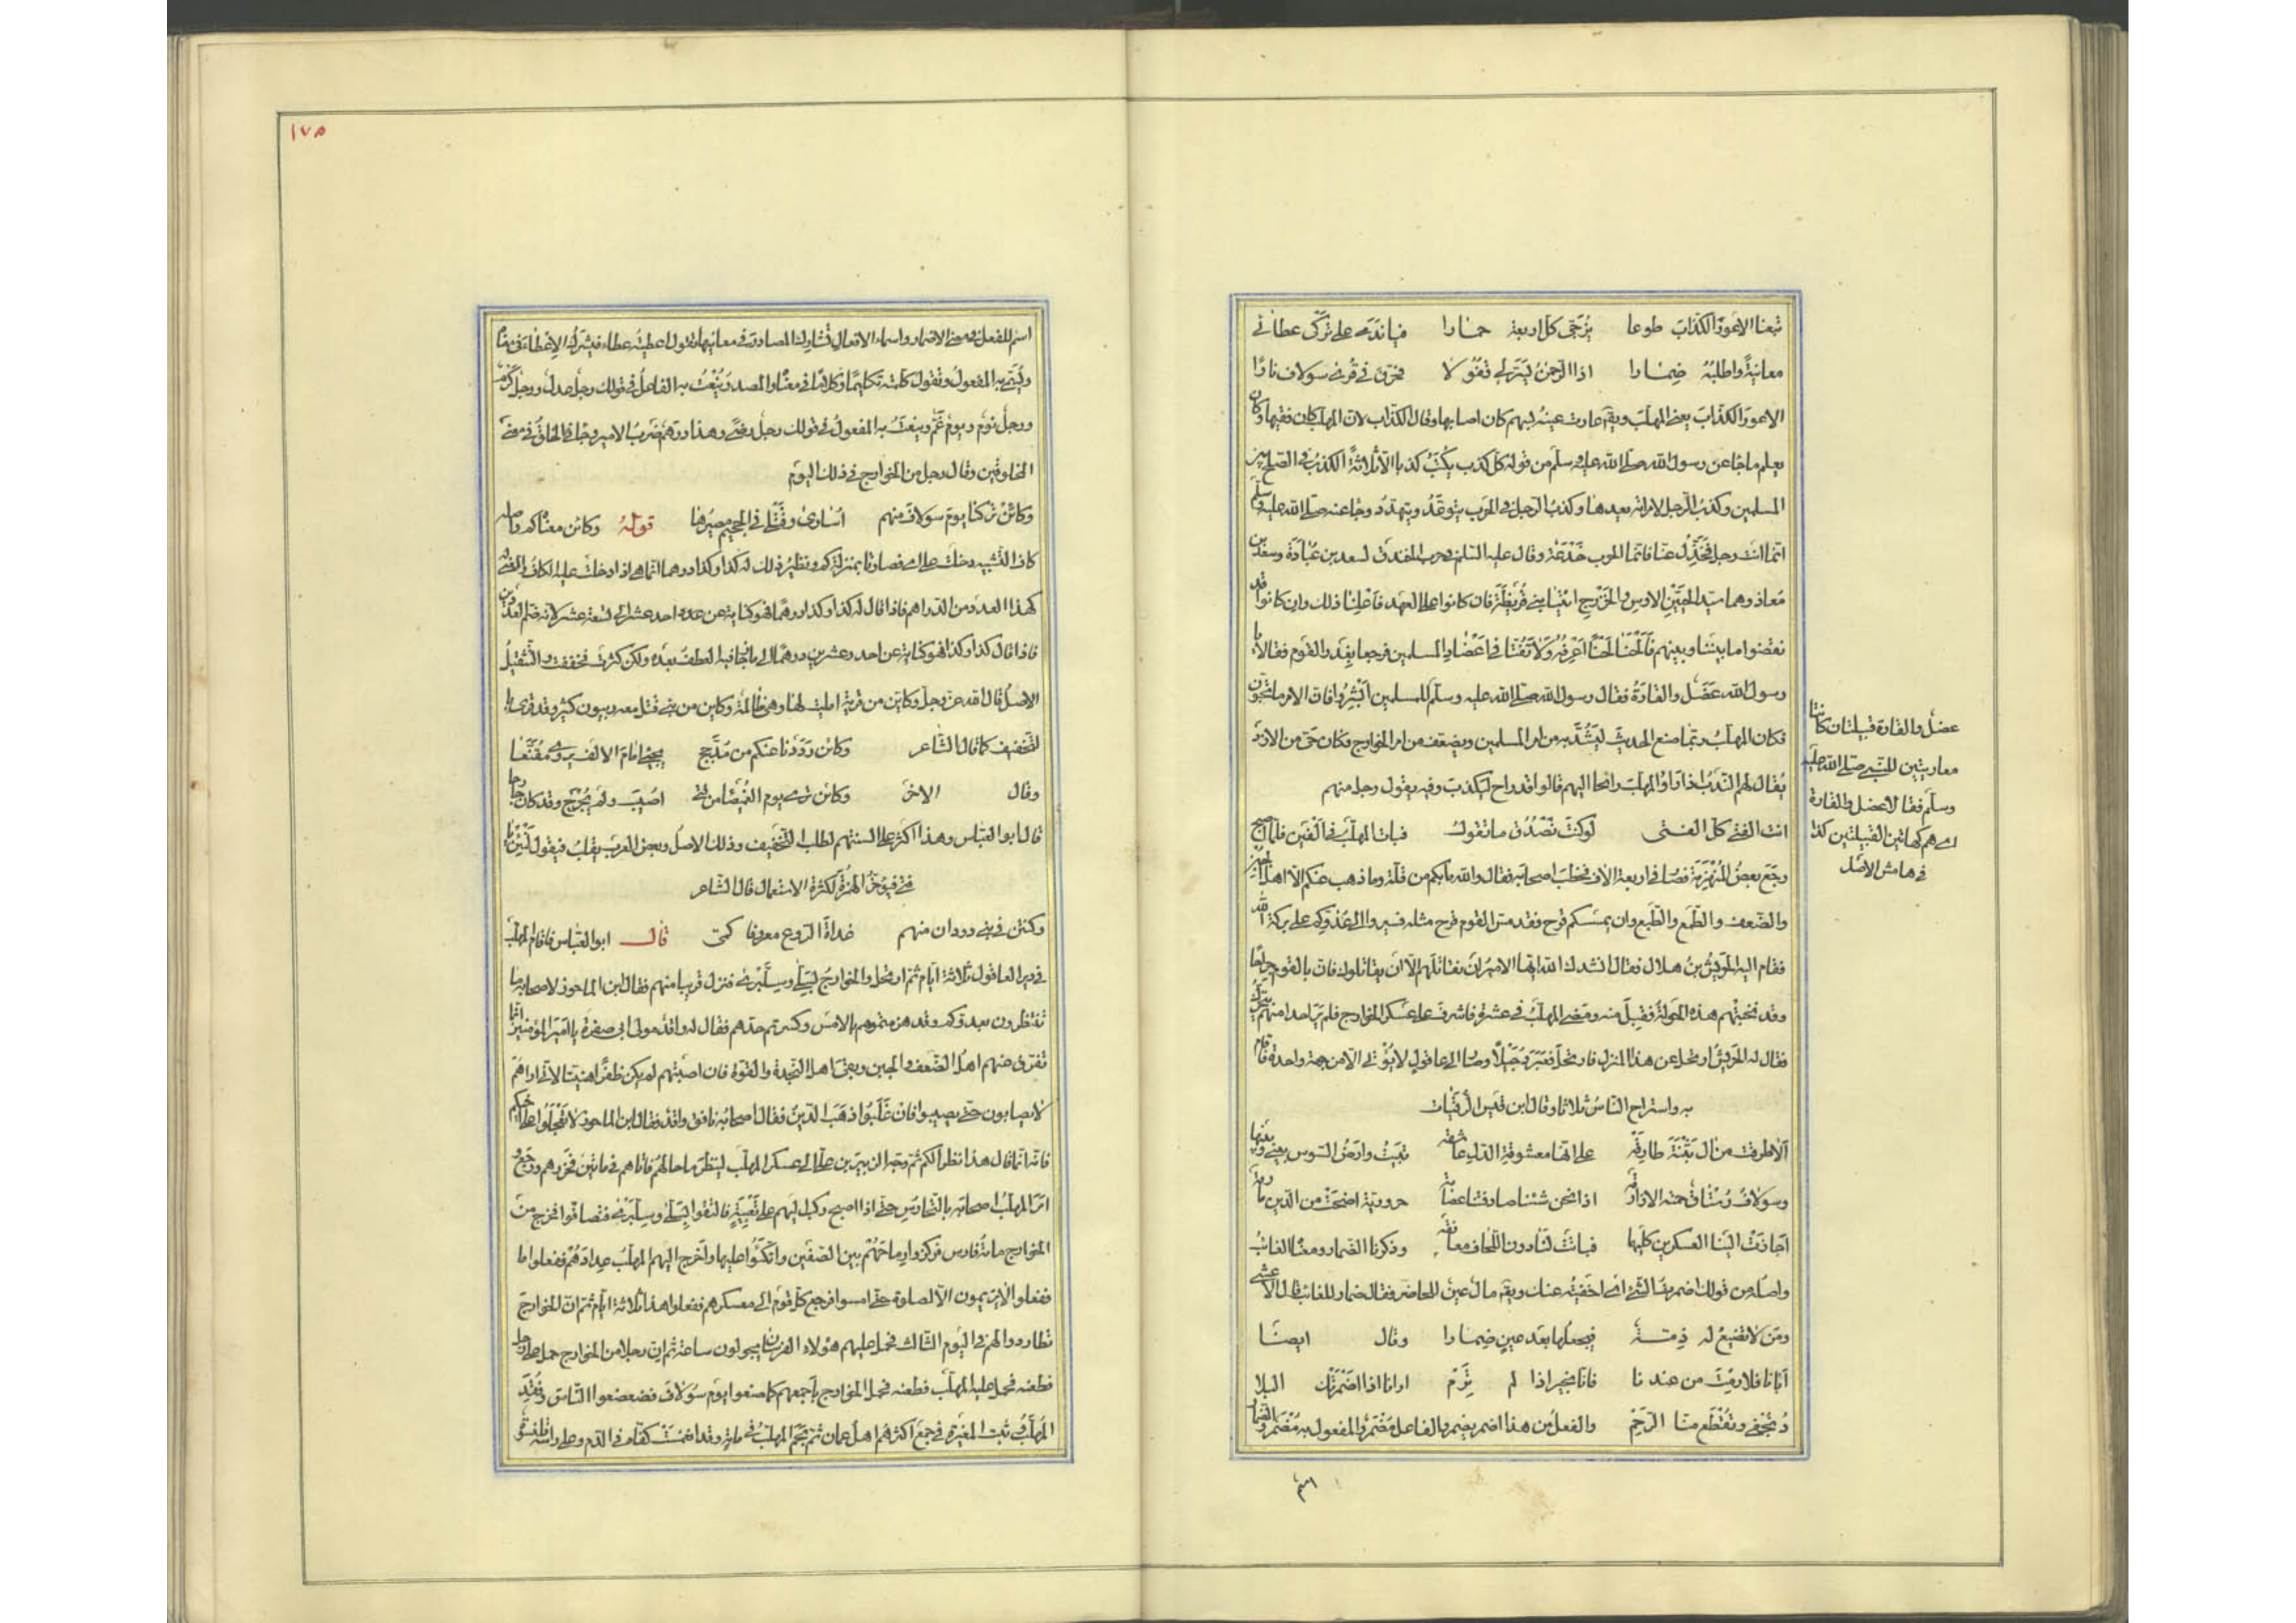 تبعنا الاعور الكذاب طوعا يزجى كل اربعة حمارا فيا ندمى على تركى عطائى
معاينة واطلبه ضمارا اذا الرحمن يسر لى قفولا فحرق فى قرى سولاف نارا
الاعور الكذاب يعنى المهلب ويقم عارت عينه بسهم كان اصابها وقال الكذاب لان المهلب كان فقيها وكان
يعلم ما جا عن رسول الله صلى الله عليه وسلم من قوله كل كذب يكتب كذبا الا ثلاثة الكذب فى الصلح بين
المسلمين وكذب الرجل لامراته يعدها وكذب الرجل فى الحرب يتوعد ويتهدد وجا عنه صلى الله عليه وسلم
انما انت رجل فخذل عنا فانما الحرب خدعة وقال عليه السلم فى حرب الخندق لسعد بن عبادة وسعد بن
معاذ وهما سيد الحيين الاوس والخزرج ائتيا بنى قريظة فان كانوا على العهد فاعلنا ذلك وان كانوا قد
نقضوا ما بيننا وبينهم فالحنا لحنا اعرفه ولا تفتا فى اعضاد المسلمين فرجعا بغدر القوم فقالا يا
رسول الله عضل والقارة فقال رسول الله صلى الله عليه وسلم للمسلمين ابشروا فان الامر ما تحبون
فكان المهلب ربما صنع الحديث ليشد به من امر المسلمين ويضعف من امر الخوارج وكان حى من الازد
يقال لهم الندب اذا راوا المهلب رائحا اليهم قالوا قد راح ليكذب وفيه يقول رجل منهم
انت الفتى كل الفتى لو كنت تصدق ما تقول فبات المهلب فى الفين فلما اصبح
رجع بعض المنهزمة فصار فى اربعة الاف فخطب اصحابه فقال والله ما بكم من قلة وما ذهب عنكم الا اهل الجبن
والضعف والطمع والطبع وان يمسسكم قرح فقد مس القوم قرح مثله فسيروا الى عدوكم على بركة الله
فقام اليه الحريش بن هلال فقال انشدك الله ايها الامير ان تقاتلهم الا ان يقاتلوك فان بالقوم جراحا
وقد تخنتهم هذه الجولة فقبل منه ومضى المهلب فى عشرة فاشرف على عسكر الخوارج فلم ير احدا منهم يتحرك
فقال له الحريش ارتحل عن هذا المنزل فارتحل فعبر دجيلا وصار الى عاقول لا يؤتى الا من جهة واحدة فاقام
به واستراح الناس ثلاثا وقال ابن قيس الرقيات
الا طرقت من ال بثنة طارقه على انها معشوقة الدل عاشقه تبيت وارض السوس بينى وبينها
وسولاف رستاق حمته الازارقه اذا نحن شئنا صادفتنا عصابة حرورية اضحت من الدين مارقة
اجازت الينا العسكرين كليهما فباتت لنا دون اللحاف معانقه وذكرنا الضمار ومعنا الغائب
واصله من قولك اضمرت الشئ اى اخفيته عنك ويقم مال عين للحاضر فقال ضمار للغائب قال الاعشى
ومن لا تضيع له ذمة فيجعلها بعد عين ضمارا وقال ايضا
ابانا فلا رمت من عندنا فانا بخير اذا لم ترم ارانا اذا اضمرتك البلا
د نجفى وتقطع منا الرحم والفعل من هذا اضمر يضمر والفاعل مضمر والمفعول به مضمر والضمار
اسم
عضل والقارة قبيلتان كانتا
معاديتين للنبى صلى الله عليه
وسلم فقالا عضل والقارة
اى هم كهاتين القبيلتين كذا
فى هامش الاصل
١٧٥
اسم للفعل فى معنى الاضمار واسماء الافعال تشارك المصادر فى معانيها تقول اعطيته عطاء فيشرك الاعطاء فى معناه
ويسمى به المفعول وتقول كلمته تكليما وكلاما فى معناه والمصدر ينعت به الفاعل فى قولك رجل عدل ورجل كرم
ورجل نوم ويوم غم وينعت به المفعول فى قولك رجل رضى وهذا درهم ضرب الامير وجانى الخلق فى معنى
المخلوقين وقال رجل من الخوارج فى ذلك اليوم
وكائن تركنا يوم سولاف منهم اسارى وقتلى فى الجحيم مصيرها قوله وكائن معناه كم واصله
كاف التشبيه دخلت على اى فصارتا بمنزلة كم ونظير ذلك له كذا وكذا درهما انما هى ذا دخلت عليها الكاف والمعنى له
كهذا العدد من الدراهم فاذا قال له كذا كذا درهما فهو كناية عن عدد احد عشر الى تسعة عشر لانه ضم العددين
فاذا قال كذا وكذا فهو كناية عن احد وعشرين درهما الى ما جاز فيه العطف بعده ولكن كثرت فخففت والتثقيل
الاصل قال الله عز وجل وكاين من قرية امليت لها وهى ظالمة وكاين من نبى قتل معه ربيون كثير وقد قرى با
لتخفيف كما قال الشاعر وكائن رددنا عنكم من مدجج يجئى امام الالف يردى مقنعا
وقال الاخر وكائن ترى يوم الغميصا من فتى اصيب ولم يجرح وقد كان جارحا
قال ابو العباس وهذا اكثر على السنتهم لطلب التخفيف وذلك الاصل وبعض العرب يقلب فيقول كيئن يا
فتى فيؤخر الهمزة لكثرة الاستعمال قال الشاعر
وكئن فى بنى دودان منهم غداة الروع معروفا كمى قال ابو العباس فاقام المهلب
فى دير العاقول ثلاثة ايام ثم ارتحل والخوارج بسلى وسلبرى فنزل قريبا منهم فقال ابن الماحوز لاصحابه ما
تنتظرون بعدوكم وقد هزمتموهم بالامس وكسرتم حدهم فقال له واقد مولى ابى صفرة يا امير المؤمنين انما
تفرق عنهم اهل الضعف والجبن وبقى اهل النجدة والقوة فان اصبتهم لم يكن ظفرا هنيئا لانى اراهم
لا يصابون حتى يصيبوا فان غلبوا ذهب الدين فقال اصحابه نافق واقد فقال ابن الماحوز لا تعجلوا على اخيكم
فانه انما قال هذا نظرا لكم ثم وجه الزبير بن على الى عسكر المهلب لينظر ما حالهم فاتاهم فى مائتين فحزرهم ورجع و
امر المهلب اصحابه بالتحارس حتى اذا اصبح ركب اليهم على تعبية فالتقوا بسلى وسلبرى فتصافوا فخرج من
الخوارج مائة فارس فركزوا رماحهم بين الصفين واتكئوا عليها واخرج اليهم المهلب عدادهم ففعلوا ما
فعلوا لا يريمون الا لصلوة حتى امسوا فرجع كل قوم الى معسكرهم ففعلوا هذا ثلاثة ايام ثم ان الخوارج
تطاردوا لهم فى اليوم الثالث فحمل عليهم هؤلاء الفرسان يجولون ساعة ثم ان رجلا من الخوارج حمل على رجل
فطعنه فحمل عليه المهلب فطعنه فحمل الخوارج باجمعهم كما صنعوا يوم سولاف فضعضعوا الناس وفقد
المهلب وثبت المغيرة فى جمع اكثرهم اهل عمان ثم نجم المهلب فى مائة وقد انغمست كفاه فى الدم وعلى راسه قلنسوة